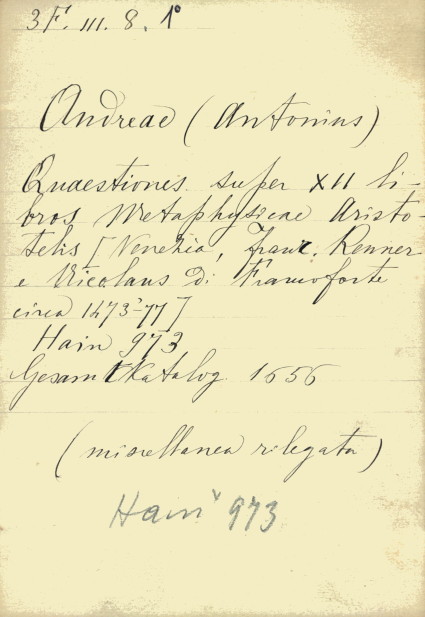 3F. III. 8. 1°
Andreae (Antonius)
Quaestiones super XII li-
bros Metaphysicae Aristo-
telis [Venezia, Franc. Renner
e Nicolaus di Francoforte
circa 1473-77]
Hain 973
Gesamtkatalog 1656
(miscellanea rilegata)
Hain 973